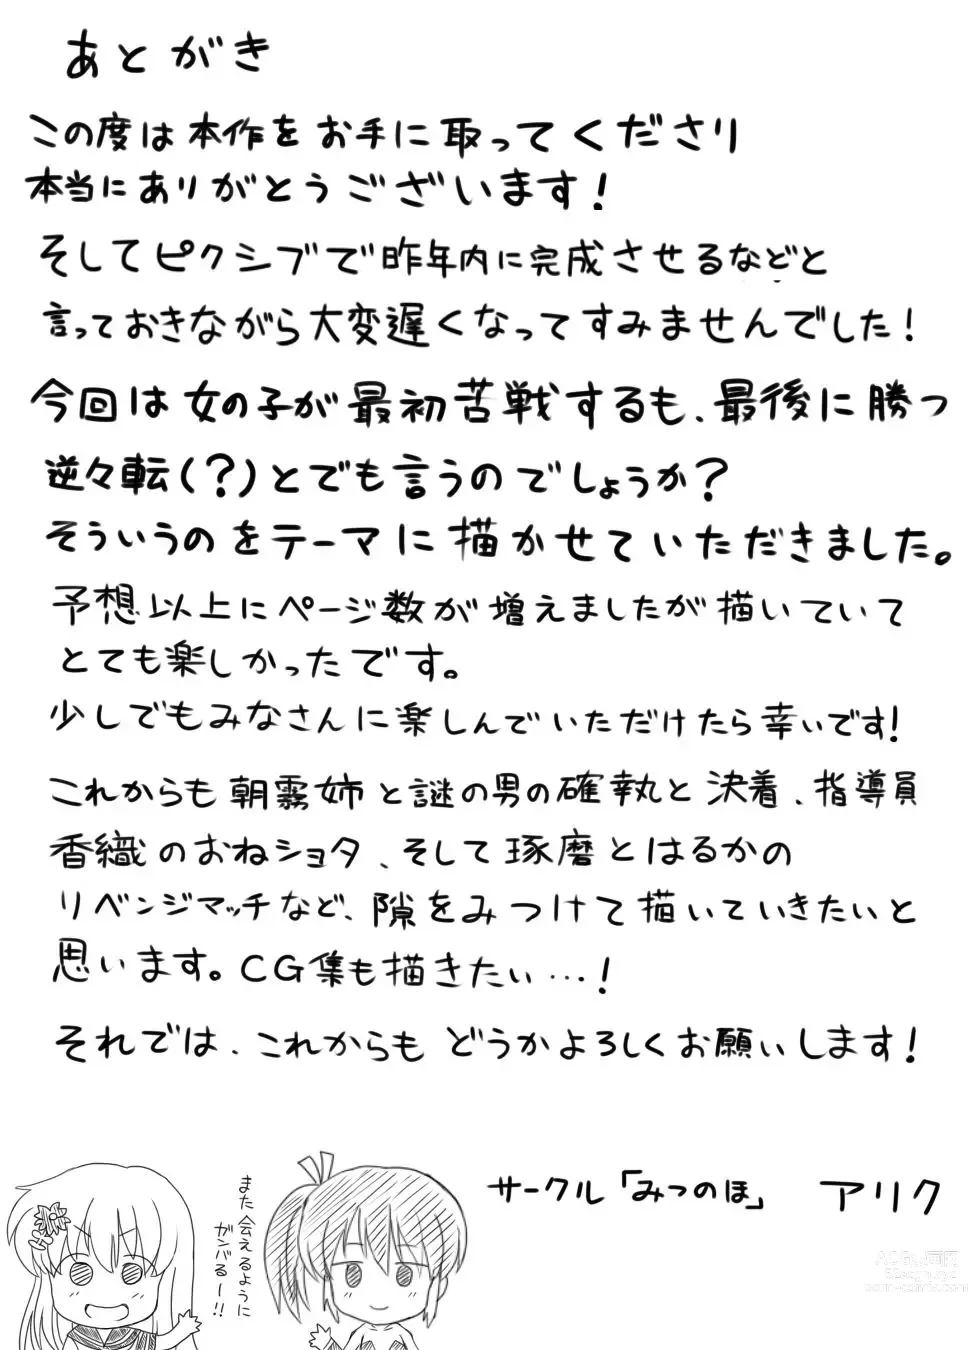 あとがき
この度は本作をお手に取ってくださり
本当にありがとうございます!
そしてピクシブで昨年内に完成させるなどと
言っておきながら大変遅くなってすみませんでした!
今回は女の子が最初苦戦するも、最後に勝つ
逆々転(?)とでも言うのでしょうか?
そういうのをテーマに描かせていただきました。
予想以上にページ数が増えましたが描いていて
とても楽しかったです。
少しでもみなさんに楽しんでいただけたら幸いです!
これからも朝霧姉と謎の男の確執と決着、指導員
香織のおねショタ、そして琢磨とはるかの
リベンジマッチなど、隙をみつけて描いていきたいと
思います。CG集も描きたい…!
それでは、これからもどうかよろしくお願いします!
また会えるように
ガンバるー!!
サークル「みつのほ」 アリク